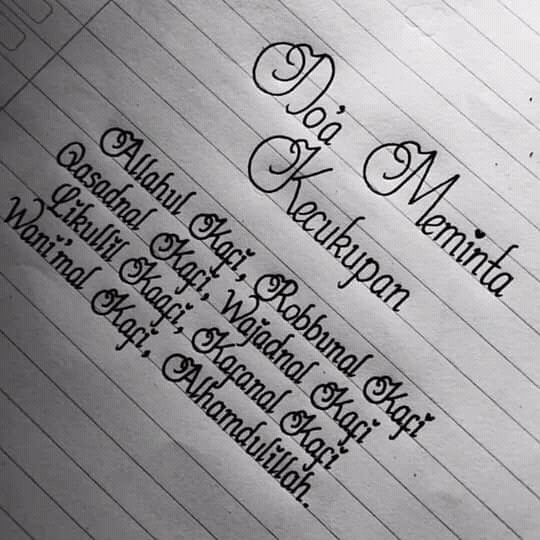 Do'a Meminta
Kecukupan
Allahul Kafi, Robbunal Kafi
Qasadnal Kafi, Wajadnal Kafi
Likullil Kaafi, Kafanal Kafi
Wani'mal Kafi, Alhamdulillah.